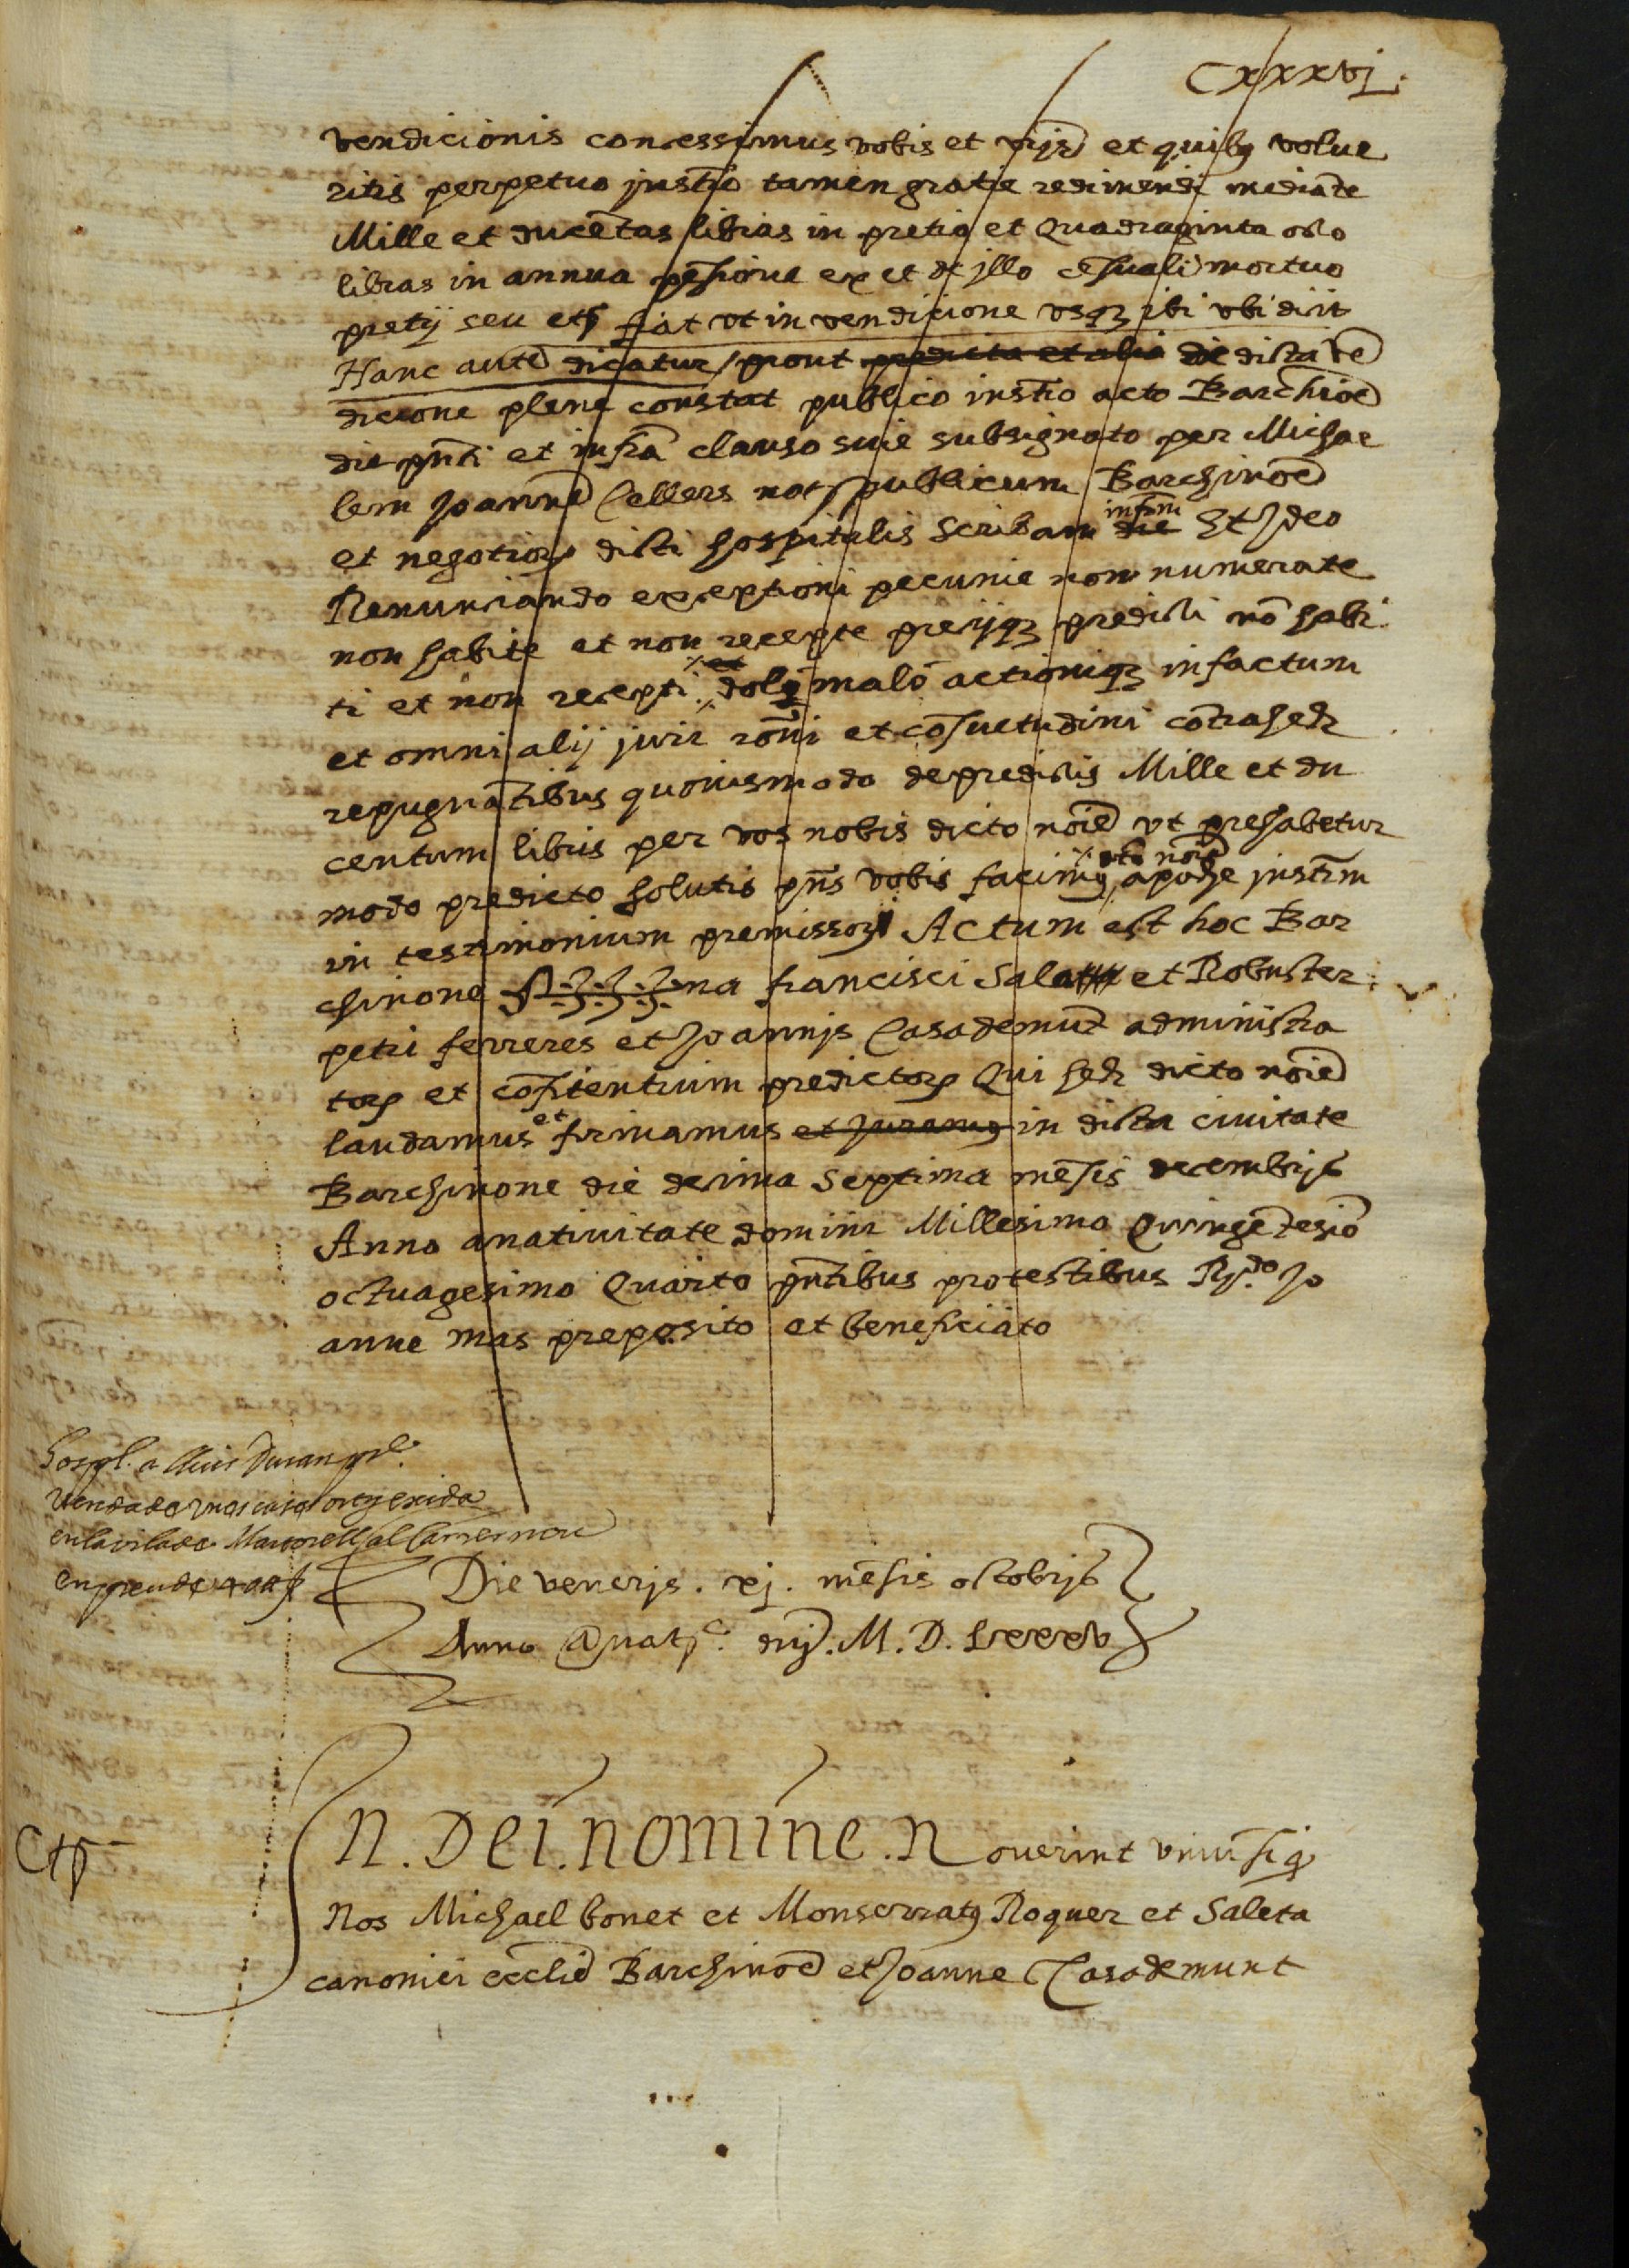 Cxxxvj.
vendicionis concessimus vobis et vr̃js et quibꝯ volue
ritis perpetuo instr̃o tamen gratie redimendi mediãte
Mille et ducẽtas libras in pretio et Quadraginta octo
libras in annua pẽsione ex et de jllo cẽsuali mortuo
pretij seu etꝭ fiat vt in vendicione vsqꝫ ibi vbi dicit
Hanc autẽ dicatur / prout predicta et alia de dicta vẽ
dicione plene constat publico instr̃o acto Barchinoẽ
die pñti et infrã clauso suie subsignato per Michae
lem Joannẽ Cellers notͫ publicum Barchinoẽ
et negotioꝝ dicti hospitalis scribam die infrm̃ Et Jdeo
Renunciando exceptioni pecunie non numerate
non habite et non recepte precijqꝫ predicti nõ habi
ti et non recepti et doliqꝫ malo actioniqꝫ in factum
et omni alij juri rõni et cõsuetudini contra hec
repugnãtibus quouismodo de predictis Mille et du
centum libris per vos nobis dicto noĩe vt prehabetur
modo predicto solutis pñs vobis facimꝯ dicto noĩe apoche instrm̃
in testimonium premissoꝝ Actum est hoc Bar
chinone na francisci Sala et Robuster
petri ferreres et Joannis Casademunt administra
toꝝ et cõfitentium predictoꝝ Qui hec dicto noĩe
laudamus et firmamus et Juramꝯ in dicta ciuitate
Barchinone die decima septima mẽsis decembris
Anno anatiuitate domini Millesimo Quingẽtesiõ
octuagesimo Quarto pñtibus protestibus Rᵈᵒ Jo
anne mas preposito et beneficiato
hospl. a lluis Duran
Venda de vna casa
en la vila de Martorell al Carrer nou
en preu de 400 ꝭ
Die veneris . xj . mẽsis octobris
Anno @ natꝭ. dnj̃. M. D. Lxxxv
Ctꝭ
JN. Dei. nomine. Nouerint vniusi qꝫ
Nos Michael bonet et Monserratꝯ Roquer et Saleta
canonici ecclie Barchinoẽ et Joanne Casademunt